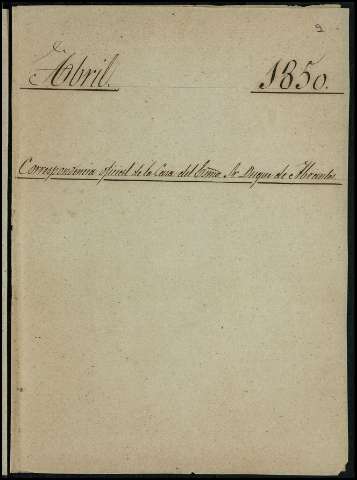 Abril. 1850.
Correspondencia oficial de la Casa del Exmo. Sr. Duque de Abrantes